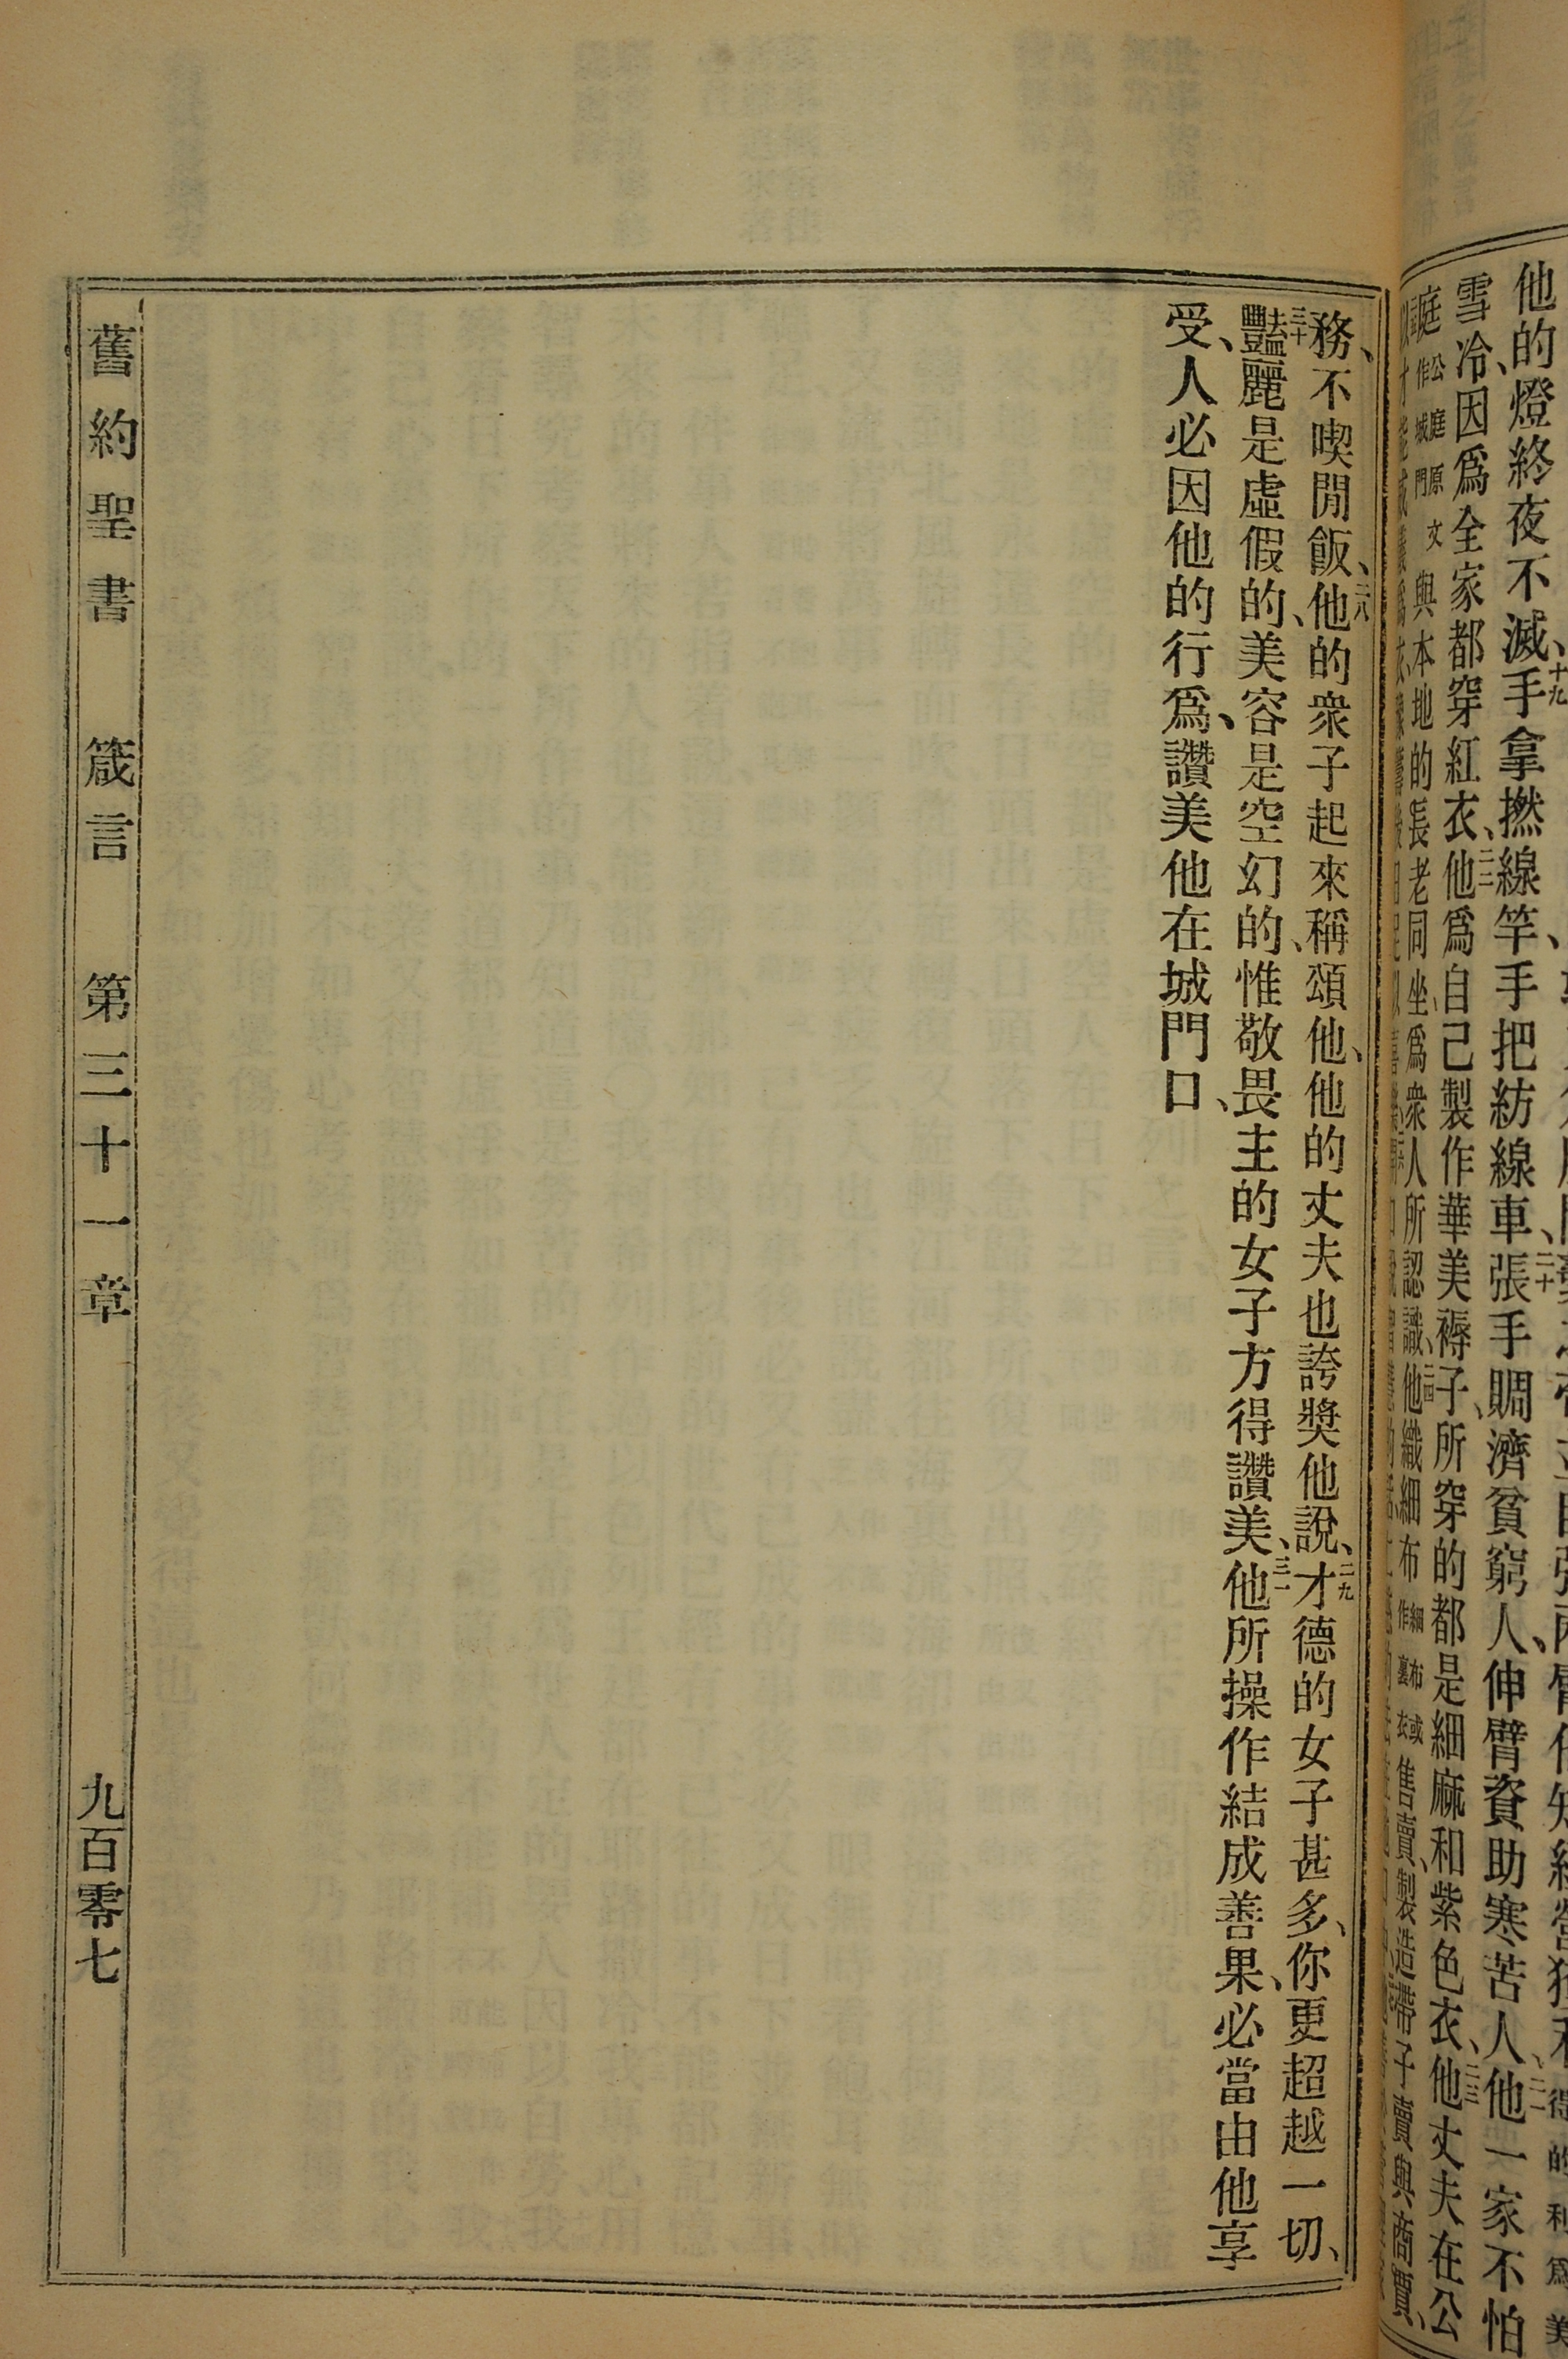 他的燈終夜不滅、十九手拿撚線竿、手把紡線車、二十張手賙濟貧窮人、伸臂資助寒苦人、二一他一家不怕
雪冷、因爲全家都穿紅衣、二二他爲自己製作華美褥子、所穿的都是細麻和紫色衣、二三他丈夫在公
庭公庭原文作城門與本地的長老同坐、爲衆人所認識、二四他織細布細布或作裏衣售賣、製造帶子賣與商賈、
務、不喫閒飯、二八他的衆子起來稱頌他、他的丈夫也誇奬他說、二九才德的女子甚多、你更超越一切、
三十豔麗是虛假的、美容是空幻的、惟敬畏主的女子方得讚美、三一他所操作結成善果、必當由他享
受、人必因他的行爲、讚美他在城門口、
舊約聖書 箴言 第三十一章 九百零七